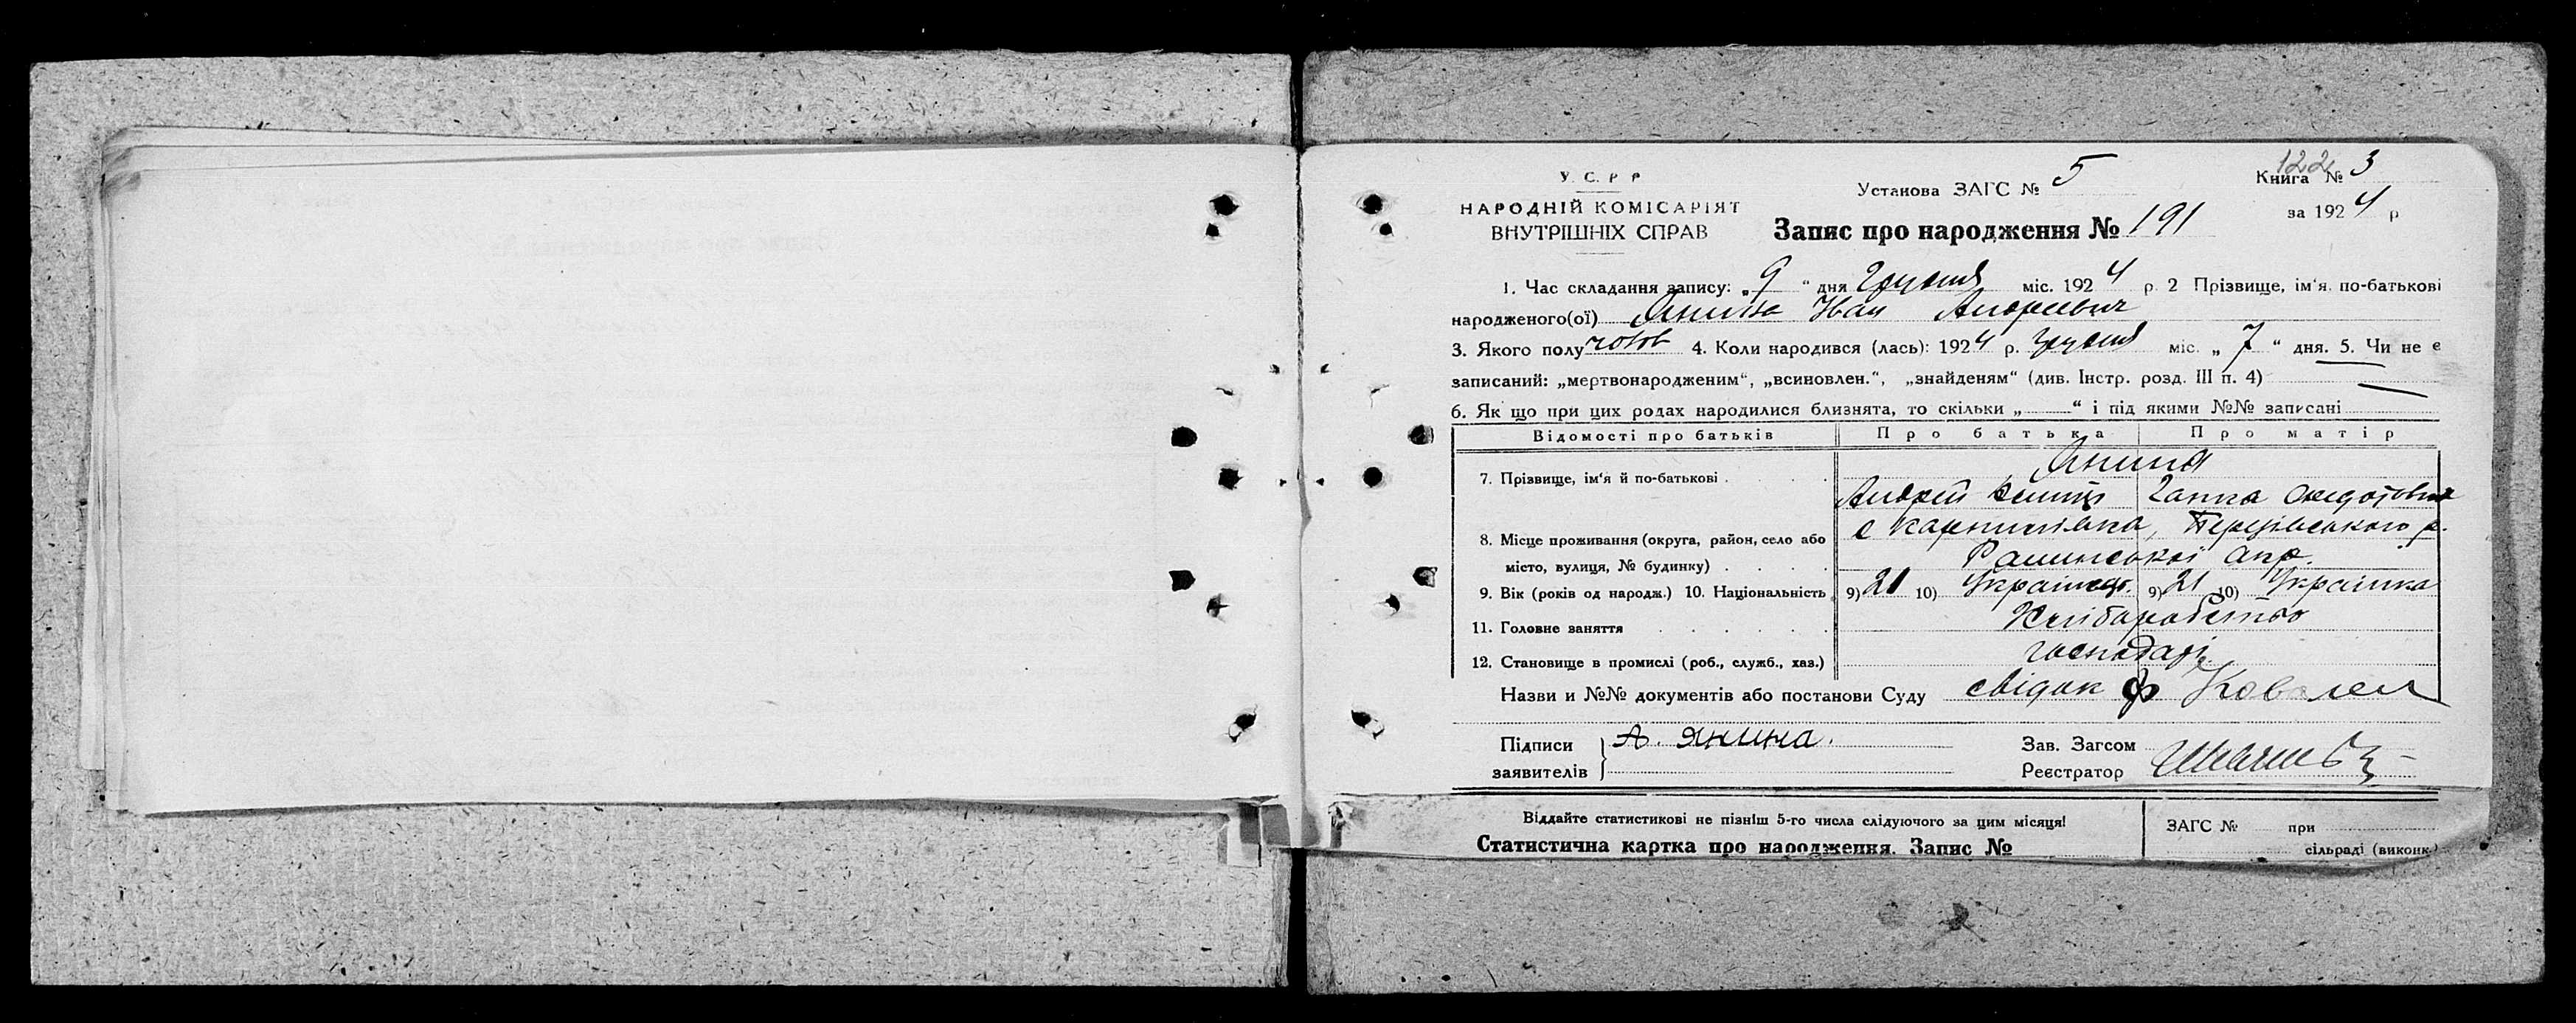 У. С. Р. Р.
НАРОДНІЙ КОМІСАРІЯТ
ВНУТРІШНІХ СПРАВ
Установа ЗАГС № 5
122
Книга № 3
за 1924 р
Запис про народження № 191
1. Час складання запису: „9“ дня Грудня міс. 1924 р. 2 Прізвище, ім‘я, по-батькові
народженого(ої) Янина Иван Андреевич
3. Якого полу чолов 4. Коли народився (лась): 1924 р. Грудня міс. „7“ дня. 5. Чи не є
записаний: „мертвонародженим“, „всиновлен.“, „знайденям“ (див. Інстр. розд. III п. 4) —
6. Як що при цих родах народилися близнята, то скільки „ “ і під якими №№ записані
Відомості про батьків Про батька Про матір
7. Прізвище, ім‘я й по-батькові Янина
Андрей Ганна Федотовна
8. Місце проживання (округа, район, село або
місто, вулиця, № будинку)
с Карпилівка, р.
Роменської окр.
9. Вік (років од народж.) 10. Національність 9) 21 10) Українець. 9) 21 10) Українка
11. Головне заняття Хліборобство
12. Становище в промислі (роб., служб., хаз.) господарі
Назви и №№ документів або постанови Суду свідок Ф Ковалел
Підписи
заявителів
А. Янина.
Зав. Загсом
Реєстратор
Віддайте статистикові не пізніш 5-го числа слідуючого за цим місяця!
Статистична картка про народження. Запис №
ЗАГС № при
сільраді (виконк.)